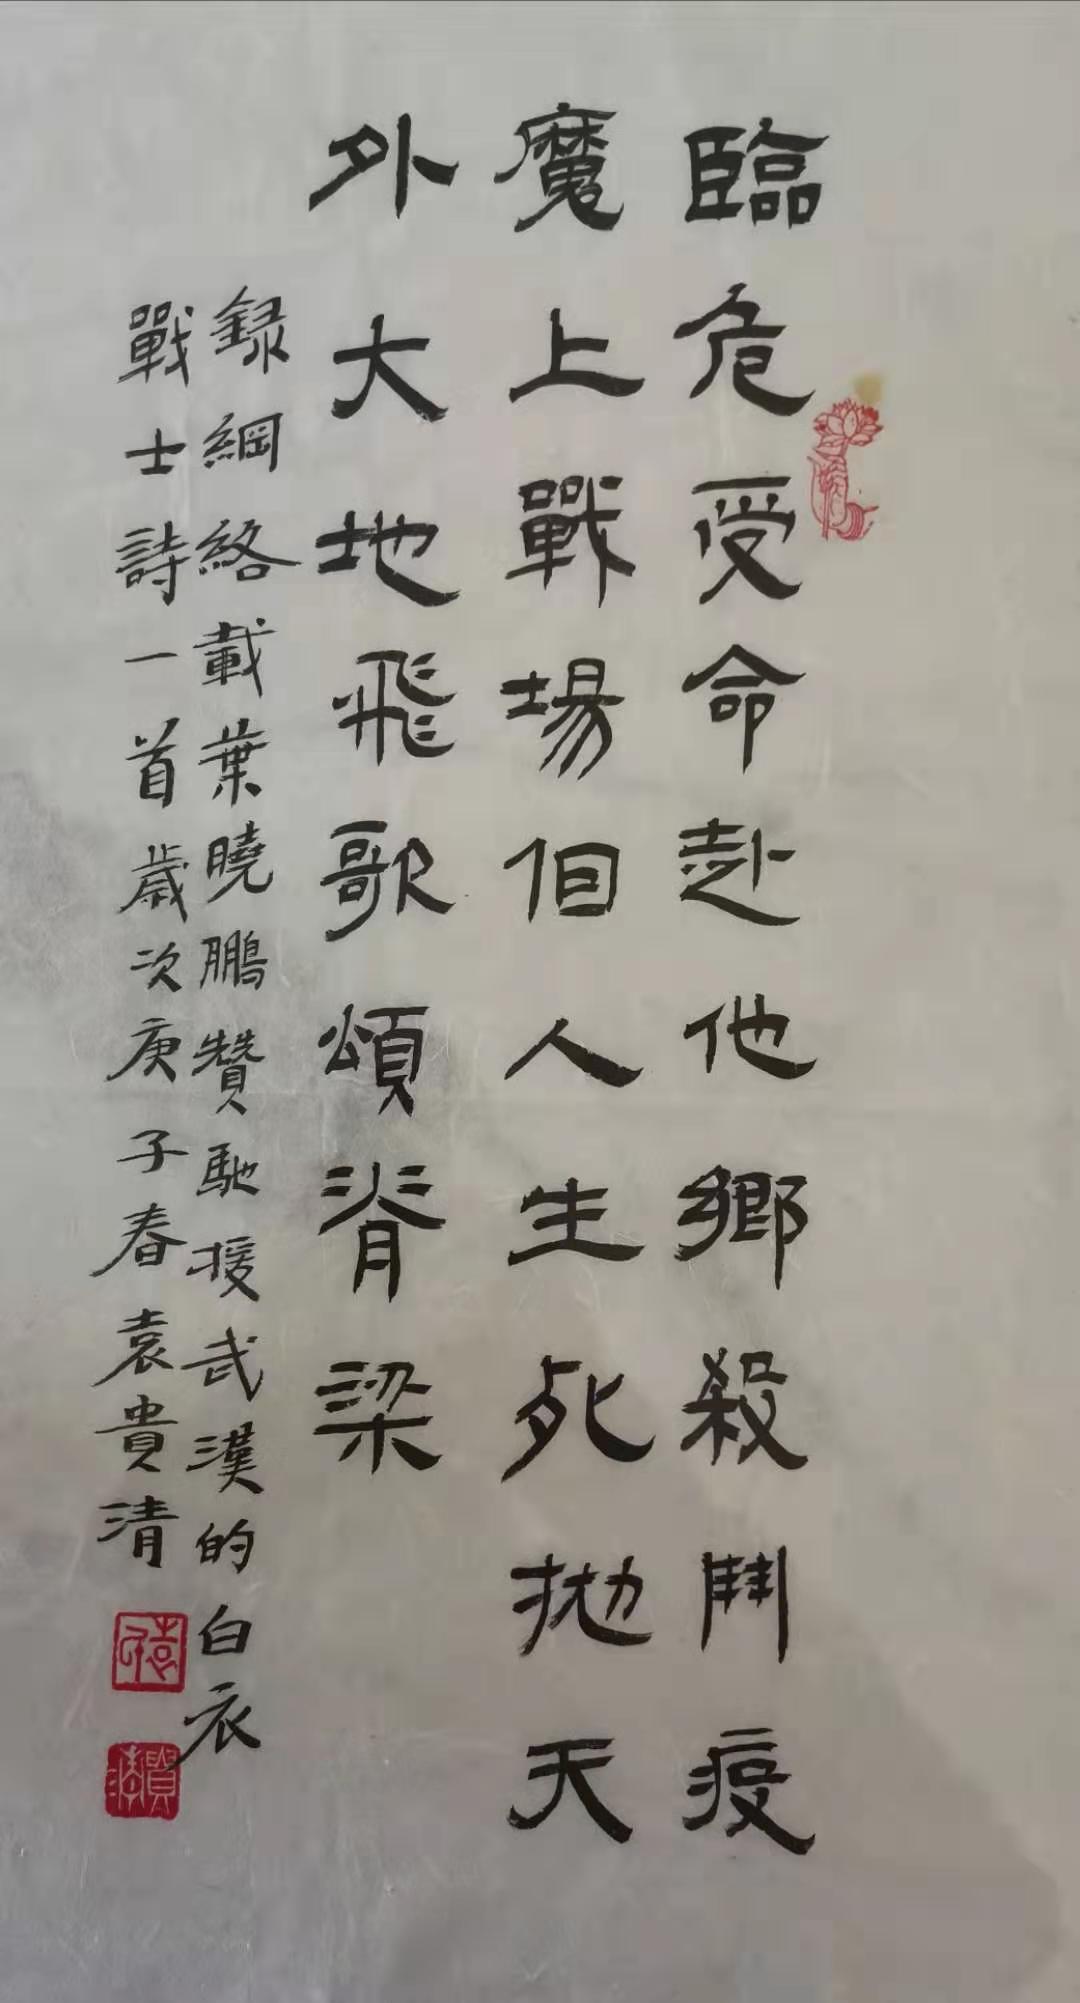 臨危受命赴他鄉殺鬥疫
魔上戰場個人生死拋天
外大地飛歌頌脊梁
録綱絡載葉曉鵬贊馳援武漢的白衣
戰士詩一首歲次庚子春袁貴清
貴清